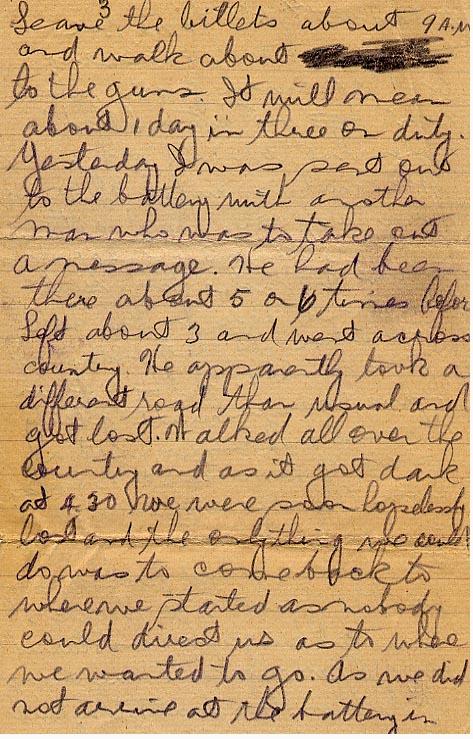 3
Leave the billets about 9 A.M
and walk about
to the guns. It will mean
about 1 day in three on duty.
Yesterday I was sent out
to the battery with another
man who was to take out
a message. He had been
there about 5 or 6 times before
Left about 3 and went across
country. He apparently took a
different road than usual and
got lost. Walked all over the
country and as it got dark
at 4.30 we were soon hopelessly
lost and the only thing we could
do was to come back to
where we started as nobody
could direct us as to where
we wanted to go. As we did
not arrive at the battery in